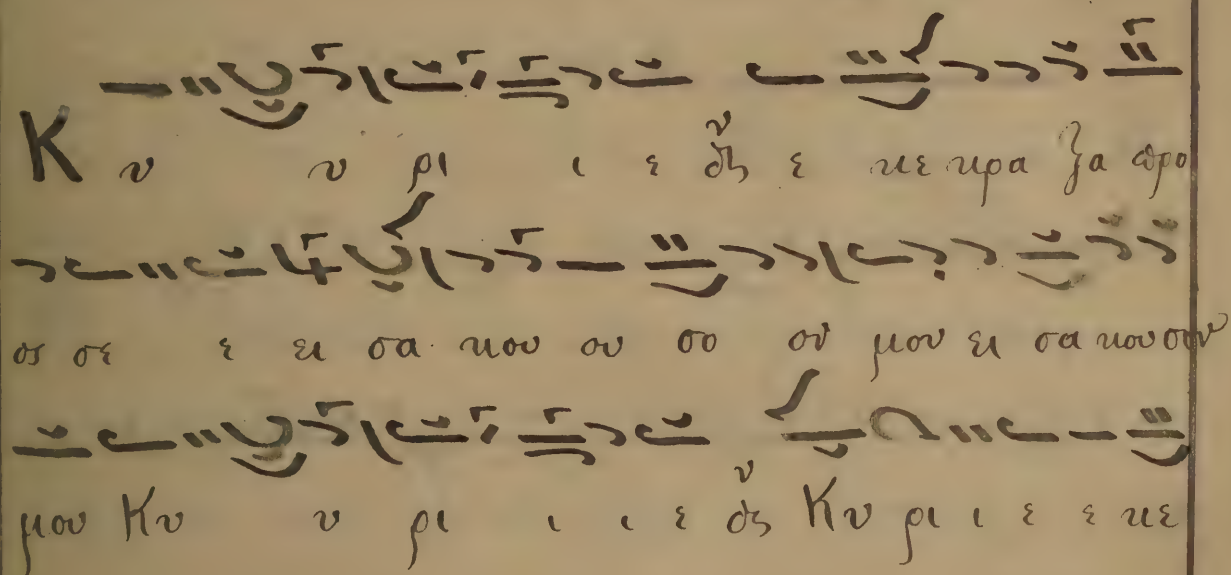 Κυ υ ρι ι ε ε κε κρα ξα προ
ος σε ε ει σα κου ου σο ου μου ει σα κου σου
μου Κυ υ ρι ι ι ε Κυ ρι ι ε ε κε